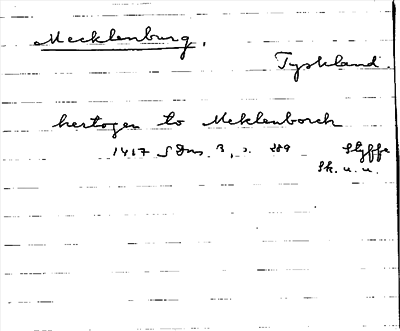 Mecklenburg,
Tyskland.
hertogen to Meklenborch
1417 SDns. 3, s. 289 Styffe
Sk. u. u.